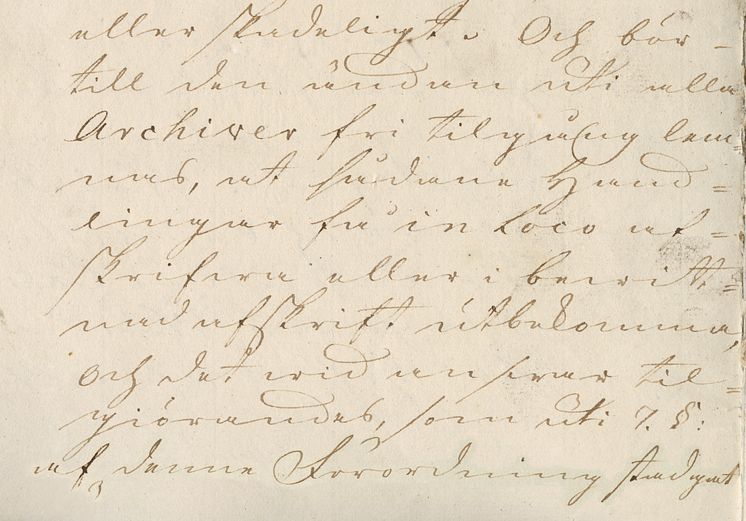 eller skadeligt. Och bör-
till den ändan uti alla
Archiver fri tilgång lem=
nas, at sådane Hand=
lingar få in Loco af=
skrifwa eller i bewitt=
nad afskrift utbekomma,
och det wid answar til=
giörandes, som uti 7. §:
af denne Förordning stadgat